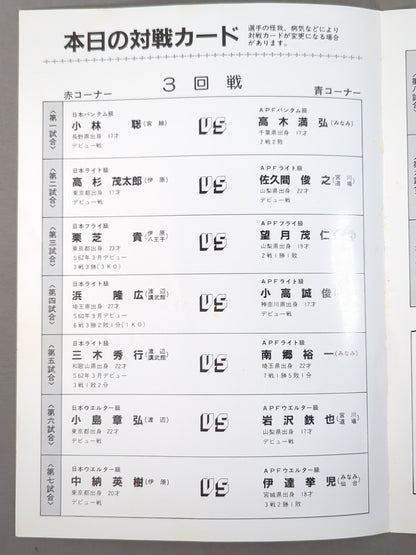 本日の対戦カード
選手の怪我、病気などにより
対戦カードが変更になる場合
があります。
3回戦
赤コーナー
青コーナー
〈第一試合〉
日本バンタム級
小林 聡(宮輪)
長野県出身 17才
デビュー戦
VS
APFバンタム級
高木満弘(みなみ)
千葉県出身 17才
2戦2敗
〈第二試合〉
日本ライト級
高杉茂太郎(伊原)
東京都出身 17才
デビュー戦
VS
APFライト級
佐久間俊之(宮川道場)
山梨県出身 22才
デビュー戦
〈第三試合〉
日本フライ級
栗芝 貴(伊原八王子)
東京都出身 23才
S62年3月デビュー
3戦3勝(3KO)
VS
APFフライ級
望月茂仁
山梨県出身 19才
2戦1勝1敗
〈第四試合〉
日本ライト級
浜 隆広(渡辺講武館)
埼玉県出身 27才
S60年9月デビュー
6戦3勝2敗1分(1KO)
VS
APFライト級
小高誠俊
神奈川県出身 17才
デビュー戦
〈第五試合〉
日本ライト級
三木秀行(渡辺講武館)
和歌山県出身 22才
S62年3月デビュー
3戦1敗2分
VS
APFライト級
南郷裕一(みなみ)
埼玉県出身 22才
7戦1勝5敗1分
〈第六試合〉
日本ウエルター級
小島章弘(渡辺)
東京都出身 22才
デビュー戦
VS
APFウエルター級
岩沢鉄也(宮川道場)
山梨県出身 17才
デビュー戦
〈第七試合〉
日本ウエルター級
中納英樹(伊原)
東京都出身 20才
デビュー戦
VS
APFウエルター級
伊達拳児(みなみ仙台)
宮城県出身 18才
3戦2勝1敗